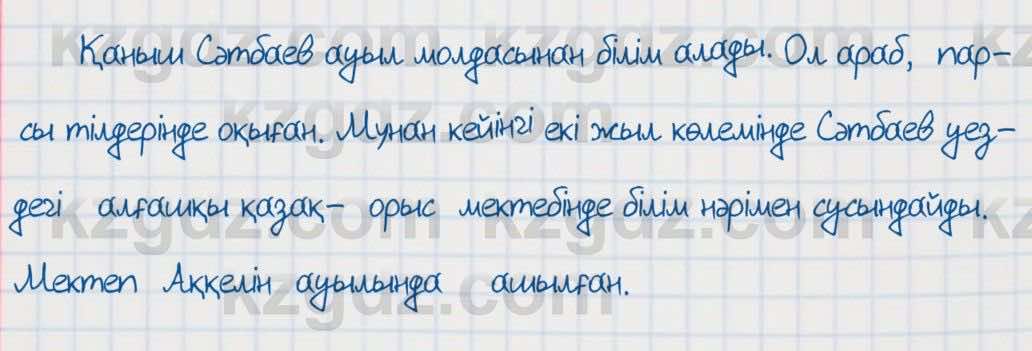 Қаныш Сәтбаев ауыл молдасынан білім алады. Ол араб, пар-
сы тілдерінде оқыған. Мунан кейінгі екі жыл көлемінде Сәтбаев уез-
дегі алғашқы қазақ- орыс мектебінде білім нәрімен сусындайды.
Мектеп Аққелін ауылында ашылған.